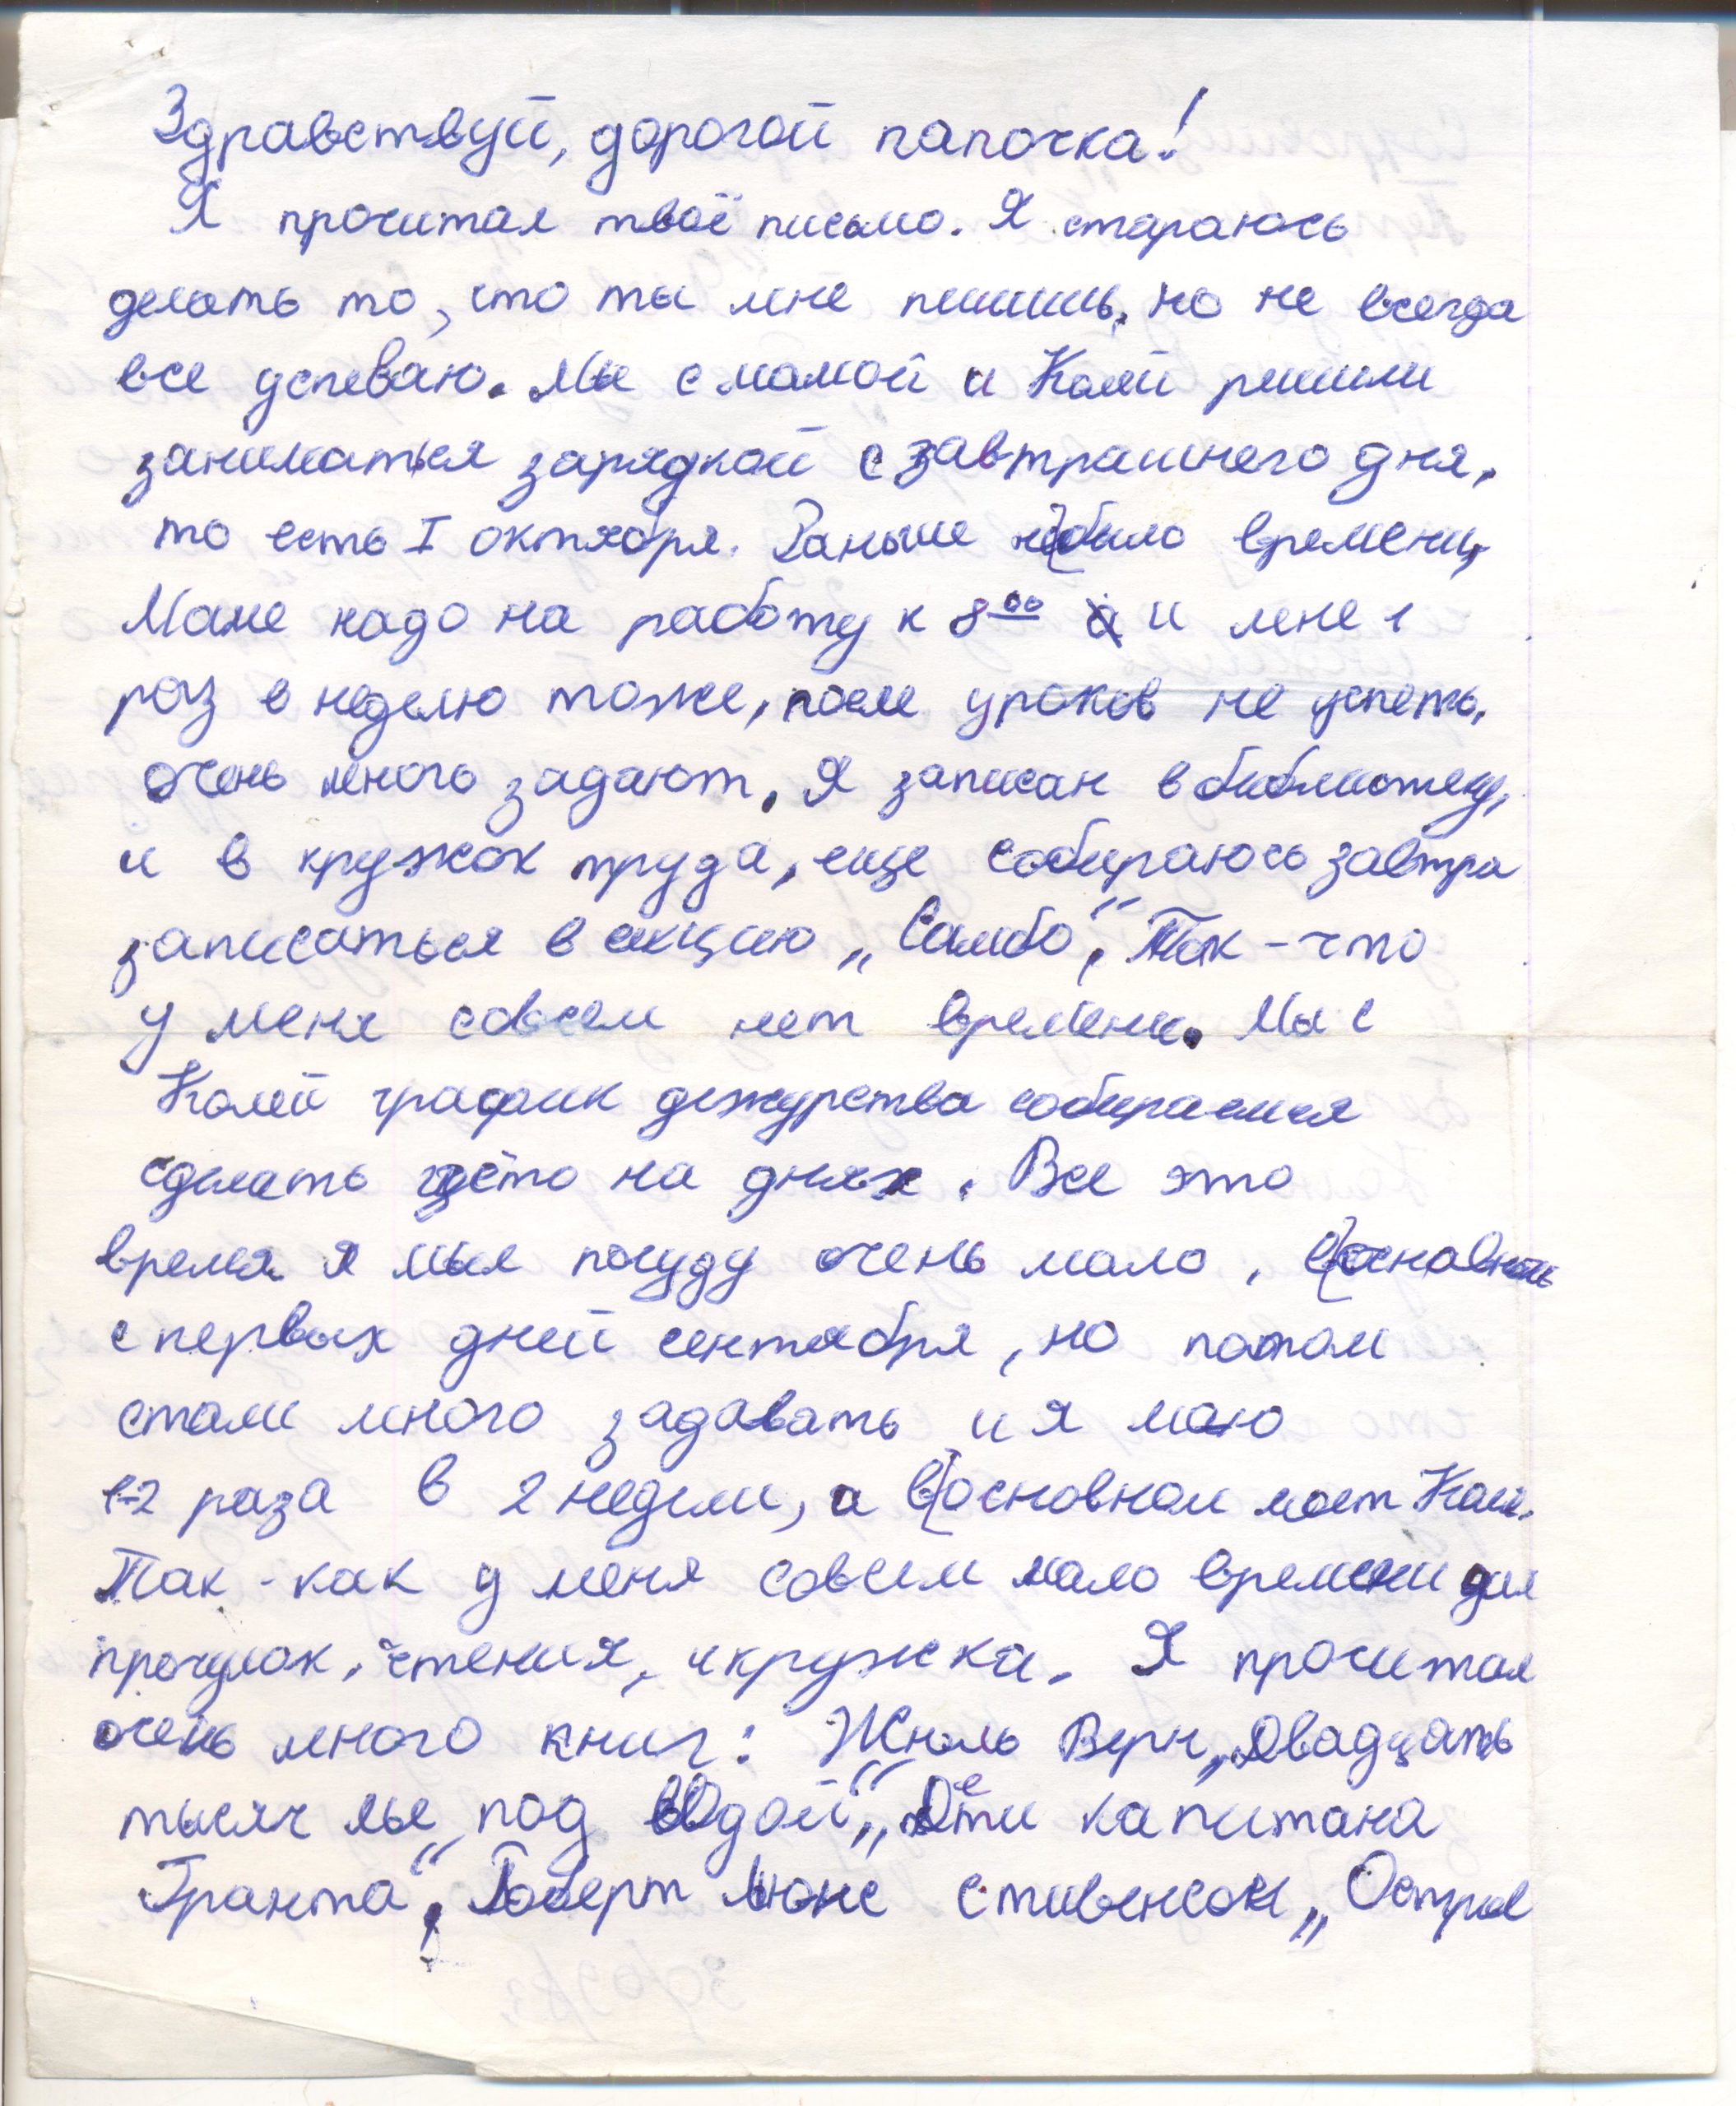 Здравствуй, дорогой папочка!
Я прочитал твоё письмо. Я стараюсь
делать то, что ты мне пишишь, но не всегда
все успеваю. Мы с мамой и Колей решили
заниматься зарядкой с завтрашнего дня,
то есть I октября. Раньше не было времени,
Маме надо на работу к 8⁰⁰ и мне 1
раз в неделю тоже, после уроков не успеть,
очень много задают. Я записан в библиотеку,
и в кружок труда, еще собираюсь завтра
записаться в секцию „Самбо“. Так-что
у меня совсем нет времени. Мы с
Колей график дежурства собираемся
сделать где-то на днях. Все это
время я мыл посуду очень мало, в основном
с первых дней сентября, но потом
стали много задавать и я мою
1-2 раза в 2 недели, а в основном моет Коля.
Так-как у меня совсем мало времени для
прогулок, чтения, и кружка. Я прочитал
очень много книг: Жюль Верн „Двадцать
тысяч лье под водой“, „Дети капитана
Гранта“, Роберт Льюис Стивенсон „Остров
30/09/83.